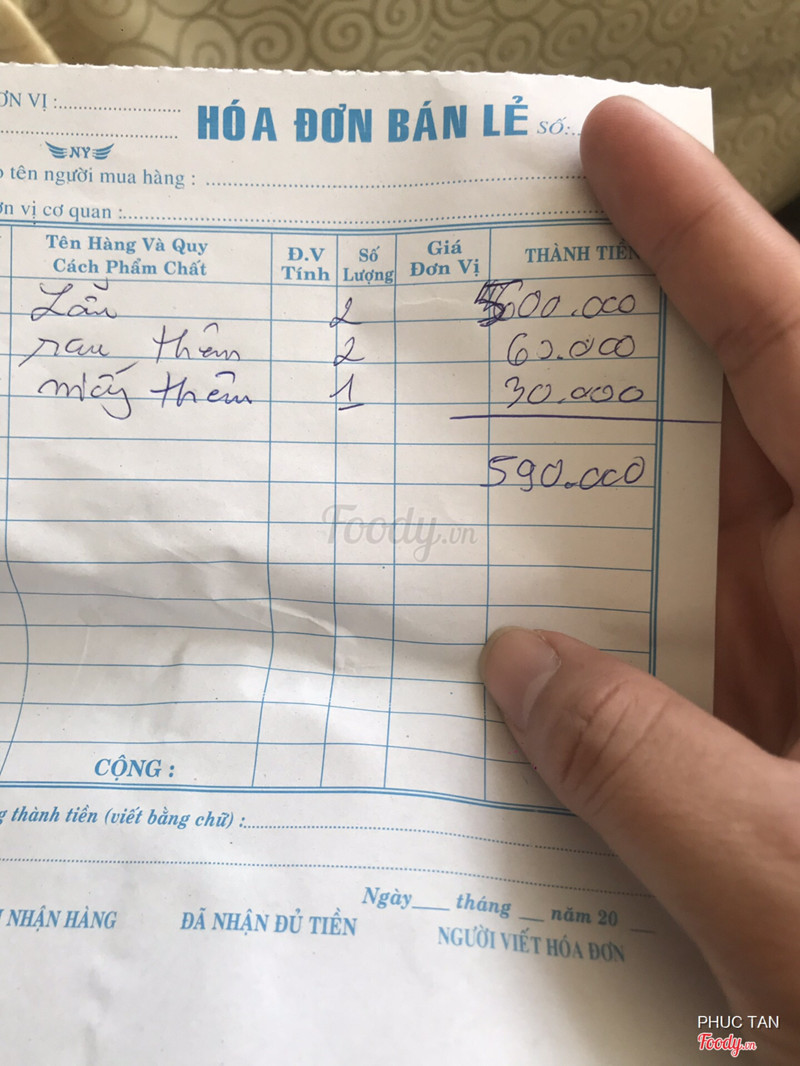 ƠN VỊ :
HÓA ĐƠN BÁN LẺ SỐ:
NY
tên người mua hàng :
ơn vị cơ quan :
Tên Hàng Và Quy Cách Phẩm Chất Đ.V Tính Số Lượng Giá Đơn Vị THÀNH TIỀN
Lẩu 2 500.000
rau thêm 2 60.000
thêm 1 30.000
590.000
Foody.vn
CỘNG :
g thành tiền (viết bằng chữ) :
Ngày tháng năm 20
NHẬN HÀNG ĐÃ NHẬN ĐỦ TIỀN NGƯỜI VIẾT HÓA ĐƠN
PHUC TAN
Foody.vn